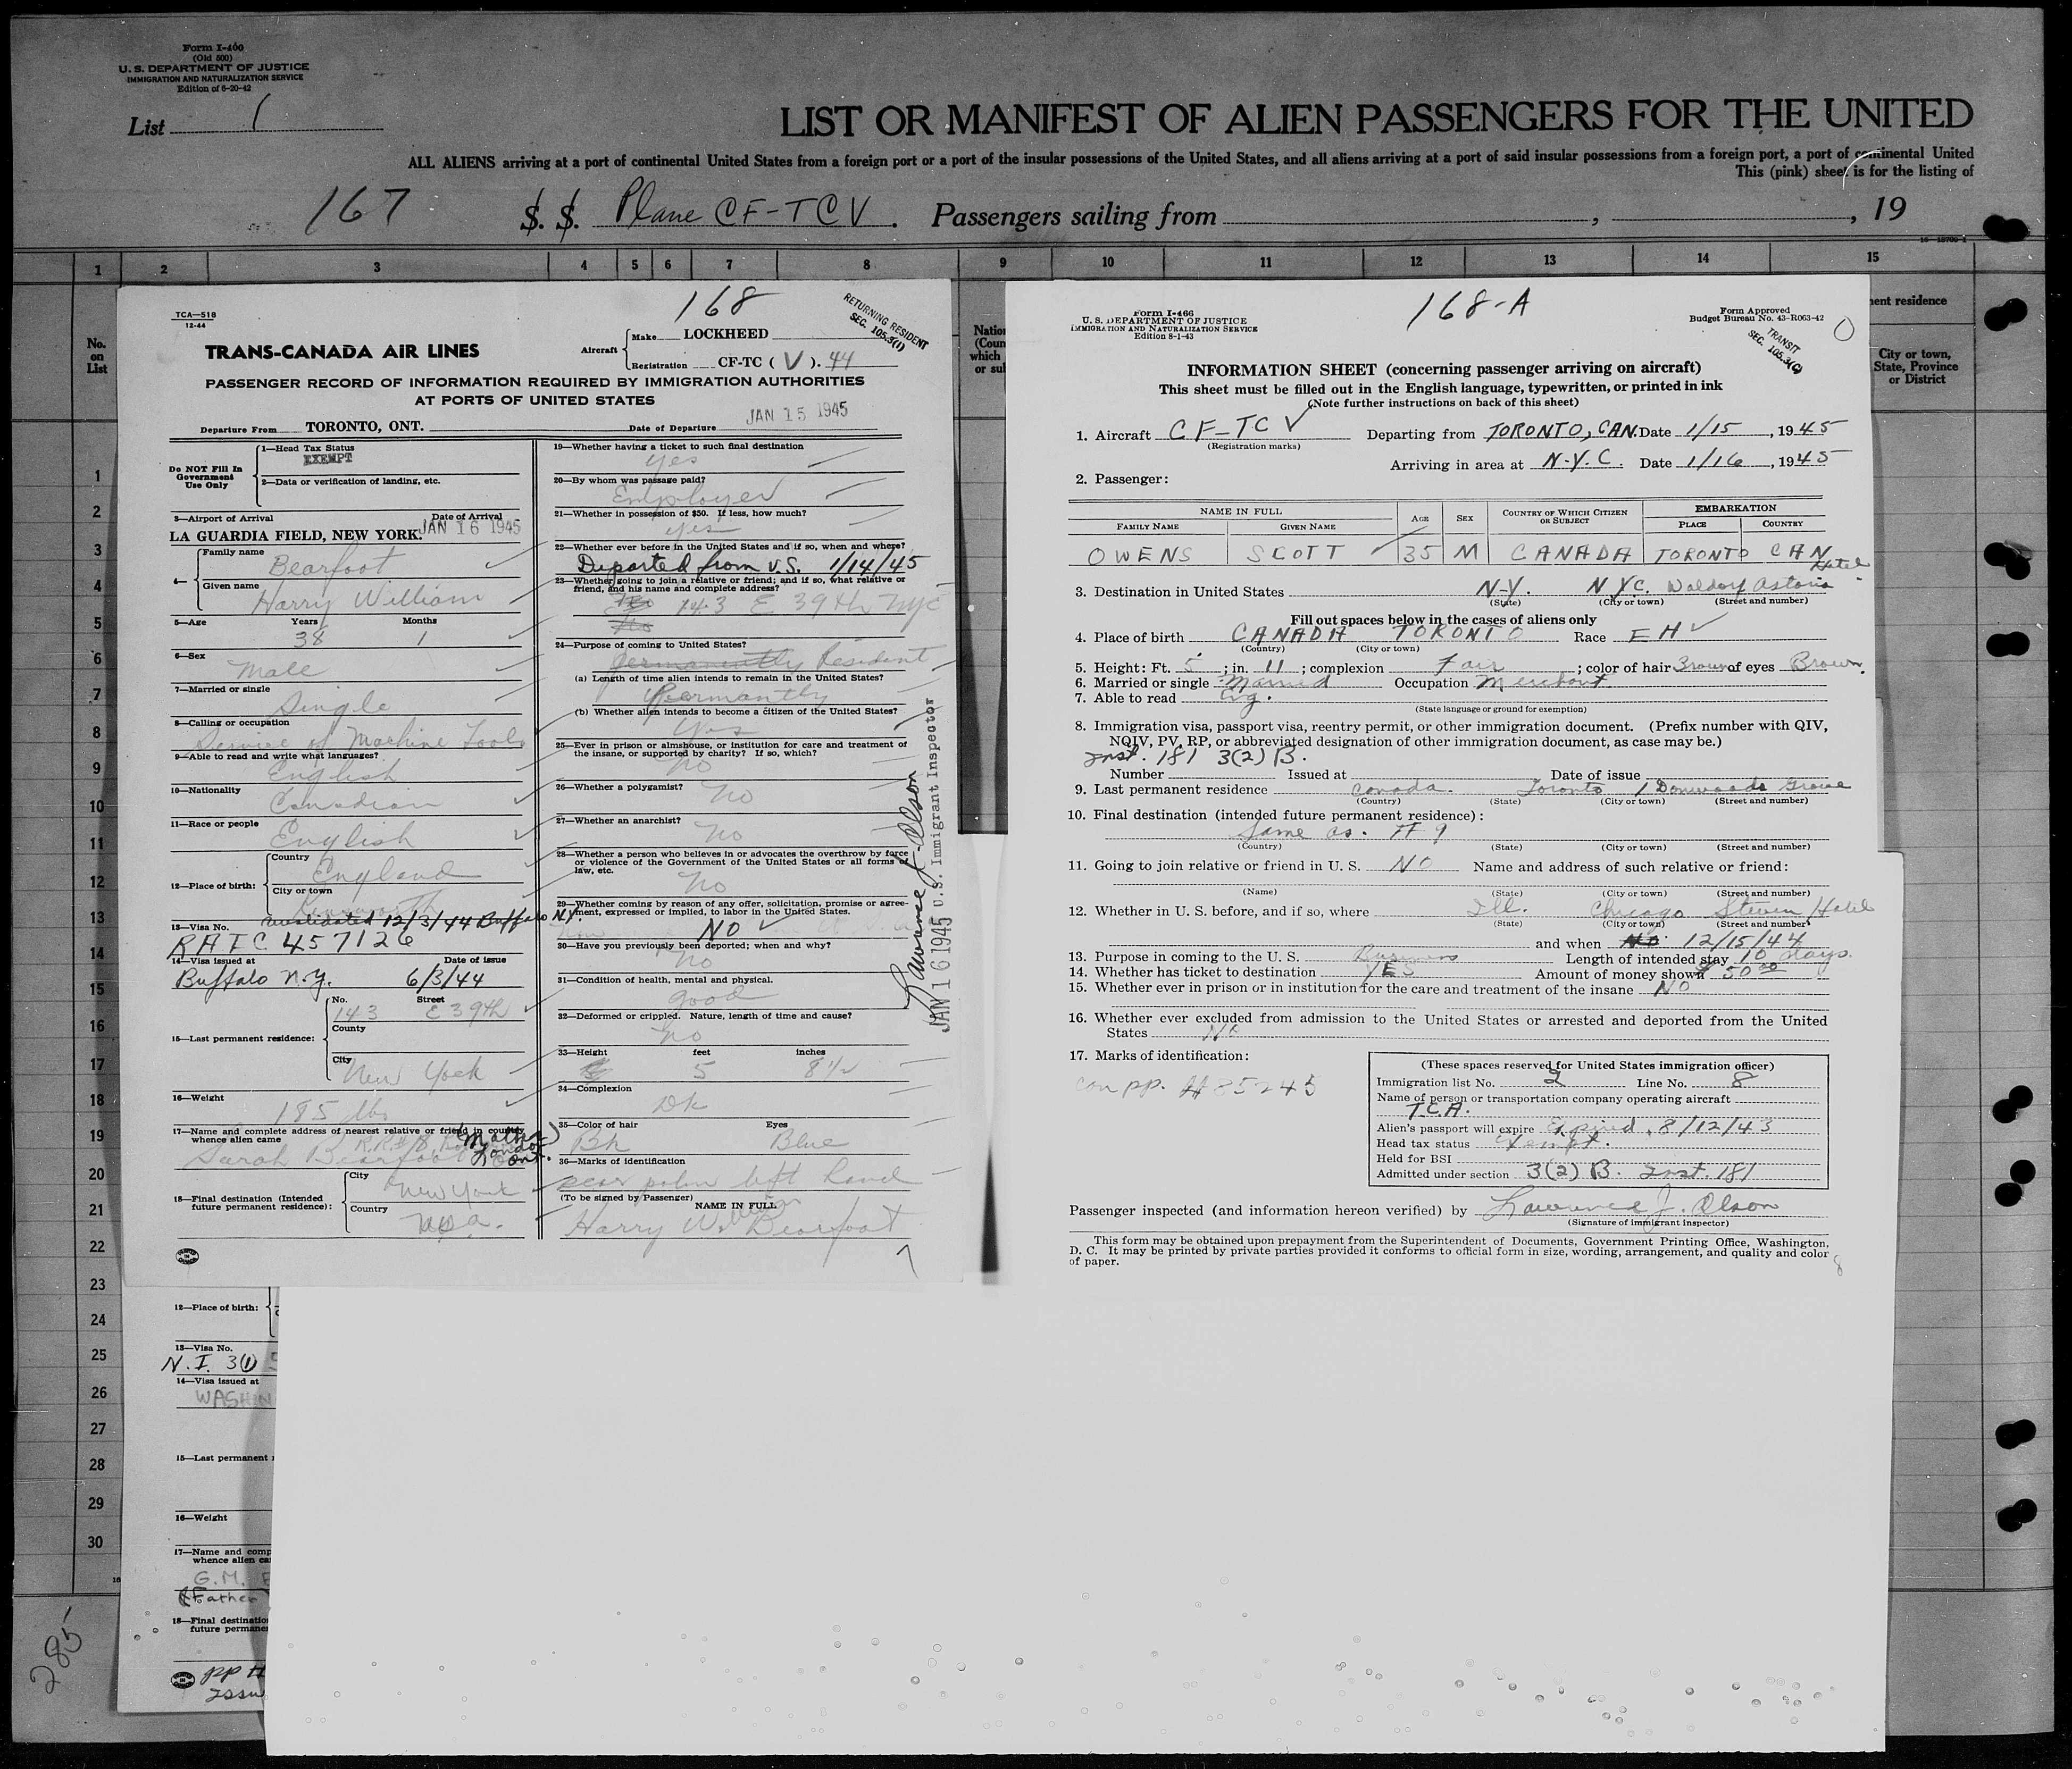 Form I-460
(Old 500)
U. S. DEPARTMENT OF JUSTICE
IMMIGRATION AND NATURALIZATION SERVICE
Edition of 6-20-42
List 1
LIST OR MANIFEST OF ALIEN PASSENGERS FOR THE UNITED
ALL ALIENS arriving at a port of continental United States from a foreign port or a port of the insular possessions of the United States, and all aliens arriving at a port of said insular possessions from a foreign port, a port of continental United
This (pink) sheet is for the listing of
167 S. S. Plane CF-TCV. Passengers sailing from , , 19
1 2 3 4 5 6 7 8 9 10 11 12 13 14 15
No.
on
List
1
2
3
4
5
6
7
8
9
10
11
12
13
14
15
16
17
18
19
20
21
22
23
24
25
26
27
28
29
30
285
168
RETURNING RESIDENT
SEC. 105.3(1)
TCA—518
12-44
TRANS-CANADA AIR LINES
Aircraft
Make LOCKHEED
Registration CF-TC ( V ). 44
PASSENGER RECORD OF INFORMATION REQUIRED BY IMMIGRATION AUTHORITIES
AT PORTS OF UNITED STATES
Departure From TORONTO, ONT. Date of Departure JAN 15 1945
Do NOT Fill In
Government
Use Only
1—Head Tax Status
EXEMPT
2—Data or verification of landing, etc.
3—Airport of Arrival Date of Arrival
LA GUARDIA FIELD, NEW YORK. JAN 16 1945
4—
Family name
Bearfoot
Given name
Harry William
5—Age Years Months
38 1
6—Sex
Male
7—Married or single
Single
8—Calling or occupation
Service of Machine Tools
9—Able to read and write what languages?
English
10—Nationality
Canadian
11—Race or people
English
12—Place of birth:
Country
England
City or town
validated 12/3/44 Buffalo N.Y.
13—Visa No.
457126
14—Visa issued at Date of issue
Buffalo N.Y. 6/3/44
15—Last permanent residence:
No. Street
143 E 39th
County
City
New York
16—Weight
185 lbs
17—Name and complete address of nearest relative or friend in country
whence alien came
(Mother)
Sarah Bearfoot London Ont.
18—Final destination (Intended
future permanent residence):
City
New York
Country
USA.
19—Whether having a ticket to such final destination
yes
20—By whom was passage paid?
Employer
21—Whether in possession of $50. If less, how much?
yes
22—Whether ever before in the United States and if so, when and where?
Departed from U.S. 1/14/45
23—Whether going to join a relative or friend; and if so, what relative or
friend, and his name and complete address?
143 E 39th NYC
No
24—Purpose of coming to United States?
permanently Resident
(a) Length of time alien intends to remain in the United States?
Permantly
(b) Whether alien intends to become a citizen of the United States?
Yes
25—Ever in prison or almshouse, or institution for care and treatment of
the insane, or supported by charity? If so, which?
No
26—Whether a polygamist?
No
27—Whether an anarchist?
No
28—Whether a person who believes in or advocates the overthrow by force
or violence of the Government of the United States or all forms of
law, etc.
No
29—Whether coming by reason of any offer, solicitation, promise or agree-
ment, expressed or implied, to labor in the United States.
NO
30—Have you previously been deported; when and why?
No
31—Condition of health, mental and physical.
good
32—Deformed or crippled. Nature, length of time and cause?
No
33—Height feet inches
5 8½
34—Complexion
Dk
35—Color of hair Eyes
Bk Blue
36—Marks of identification
scar palm left hand
(To be signed by Passenger) NAME IN FULL
Harry William Bearfoot
Lawrence J. Olson
JAN 16 1945 U.S. Immigrant Inspector
12—Place of birth:
13—Visa No.
N.I. 3(1)
14—Visa issued at
WASHIN
15—Last permanent
16—Weight
17—Name and comp
whence alien ca
G.M.
(Father
18—Final destinatio
future permane
pp #
Issu
168-A
Form I-466
U. S. DEPARTMENT OF JUSTICE
IMMIGRATION AND NATURALIZATION SERVICE
Edition 8-1-43
Form Approved
Budget Bureau No. 43-R063-42
TRANSIT
SEC. 105.3(C)
INFORMATION SHEET (concerning passenger arriving on aircraft)
This sheet must be filled out in the English language, typewritten, or printed in ink
(Note further instructions on back of this sheet)
1. Aircraft CF-TCV Departing from TORONTO, CAN. Date 1/15, 1945
(Registration marks)
Arriving in area at N.Y.C. Date 1/16, 1945
2. Passenger:
NAME IN FULL AGE SEX COUNTRY OF WHICH CITIZEN OR SUBJECT EMBARKATION
FAMILY NAME GIVEN NAME PLACE COUNTRY
OWENS SCOTT 35 M CANADA TORONTO CAN
Hotel
3. Destination in United States N-Y. NYC. Waldorf Astoria
(State) (City or town) (Street and number)
Fill out spaces below in the cases of aliens only
4. Place of birth CANADA TORONTO Race EH
(Country) (City or town)
5. Height: Ft. 5; in. 11; complexion Fair; color of hair Brown of eyes Brown.
6. Married or single Married Occupation Merchant
7. Able to read Eng.
(State language or ground for exemption)
8. Immigration visa, passport visa, reentry permit, or other immigration document. (Prefix number with QIV,
NQIV, PV, RP, or abbreviated designation of other immigration document, as case may be.)
Inst. 181 3(2) B.
Number Issued at Date of issue
9. Last permanent residence Canada. Toronto 1 Donwoods Grove
(Country) (State) (City or town) (Street and number)
10. Final destination (intended future permanent residence):
Same as. #9
(Country) (State) (City or town) (Street and number)
11. Going to join relative or friend in U. S. NO Name and address of such relative or friend:
(Name) (State) (City or town) (Street and number)
12. Whether in U. S. before, and if so, where Ill. Chicago Steven Hotel
(State) (City or town) (Street and number)
and when 12/15/44
13. Purpose in coming to the U. S. Business Length of intended stay 10 days.
14. Whether has ticket to destination YES Amount of money shown $50.00
15. Whether ever in prison or in institution for the care and treatment of the insane NO
16. Whether ever excluded from admission to the United States or arrested and deported from the United
States No
17. Marks of identification:
Can pp. #85245
(These spaces reserved for United States immigration officer)
Immigration list No. 2 Line No. 8
Name of person or transportation company operating aircraft
T.C.A.
Alien's passport will expire Expired 8/12/43
Head tax status Exempt.
Held for BSI
Admitted under section 3(2) B. Inst. 181
Passenger inspected (and information hereon verified) by Lawrence J. Olson
(Signature of immigrant inspector)
This form may be obtained upon prepayment from the Superintendent of Documents, Government Printing Office, Washington,
D. C. It may be printed by private parties provided it conforms to official form in size, wording, arrangement, and quality and color
of paper.
8
Nation
(Coun
which
or sul
nent residence
City or town,
State, Province
or District